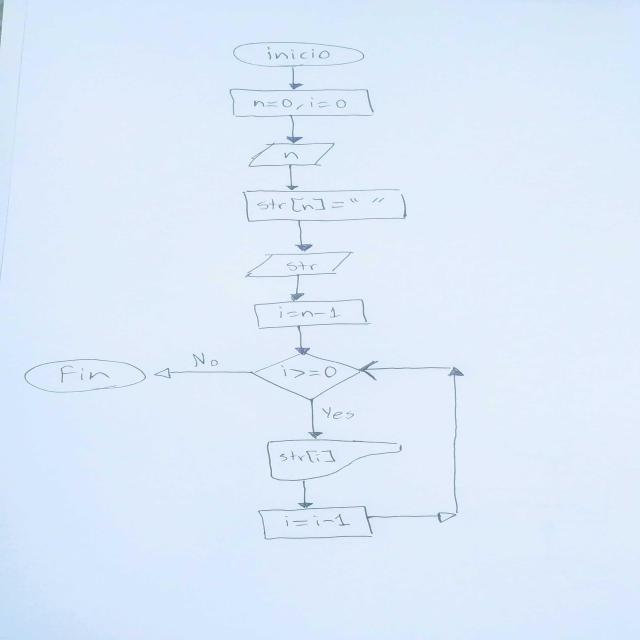 inicio
n=0, i=0
n
str[n]=" "
str
i=n-1
i>=0
No
Fin
Yes
str[i]
i=i-1